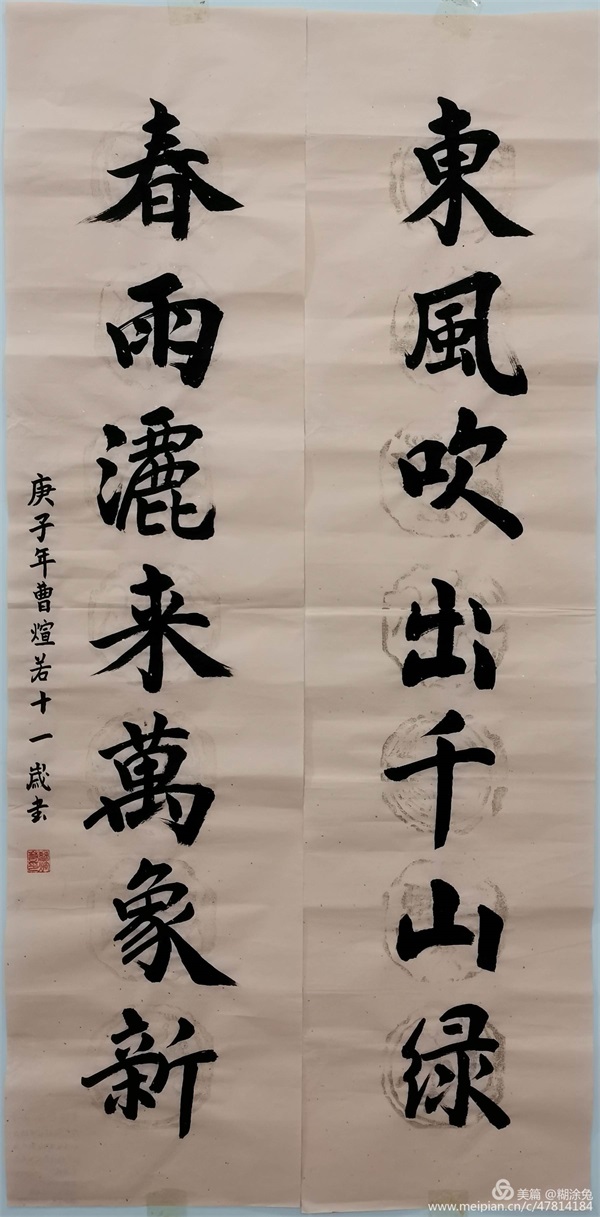 東風吹出千山绿
春雨灑来萬象新
庚子年曹煊若十一歲书
美篇 @糊涂兔
www.meipian.cn/c/47814184